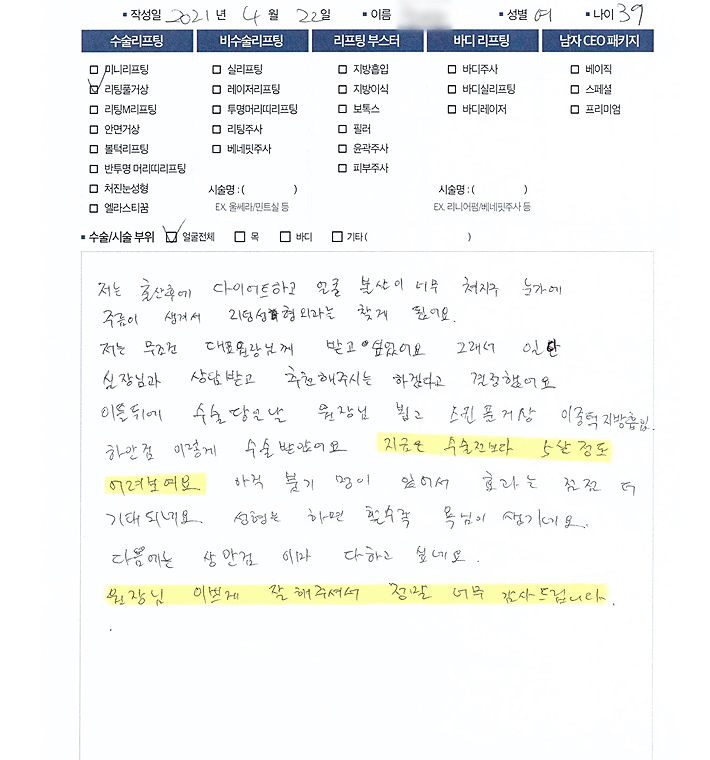 작성일 2021년 4월 22일 이름 성별 여 나이 39
수술리프팅 비수술리프팅 리프팅 부스터 바디 리프팅 남자 CEO 패키지
미니리프팅 실리프팅 지방흡입 바디주사 베이직
리팅풀거상 레이저리프팅 지방이식 바디실리프팅 스페셜
리팅M리프팅 투명머리띠리프팅 보톡스 바디레이저 프리미엄
안면거상 리팅주사 필러
볼턱리프팅 베네핏주사 윤곽주사
반투명 머리띠리프팅 피부주사
처진눈성형 시술명 : ( ) 시술명 : ( )
엘라스티꿈 EX. 울쎄라/민트실 등 EX. 리니어펌/베네핏주사 등
수술/시술 부위 얼굴전체 목 바디 기타 ( )
저는 출산후에 다이어트하고 얼굴 볼살이 너무 쳐지구 눈가에
주름이 생겨서 리팅성형외과는 찾게 됬어요.
저는 무조건 대표원장님께 받고 싶었어요 그래서 일단
실장님과 상담받고 추천해주시는 하겠다고 결정했어요
이틀뒤에 수술 당일날 원장님 뵙고 풀거상 이중턱지방흡입,
하안검 이렇게 수술받았어요 지금은 수술전보다 5살정도
어려보여요 아직 붓기 멍이 있어서 효과는 점점 더
기대되네요. 성형은 하면 할수록 욕심이 생기네요.
다음에는 상안검 이마 다하고 싶네요.
원장님 이쁘게 잘해주셔서 정말 너무 감사드립니다.